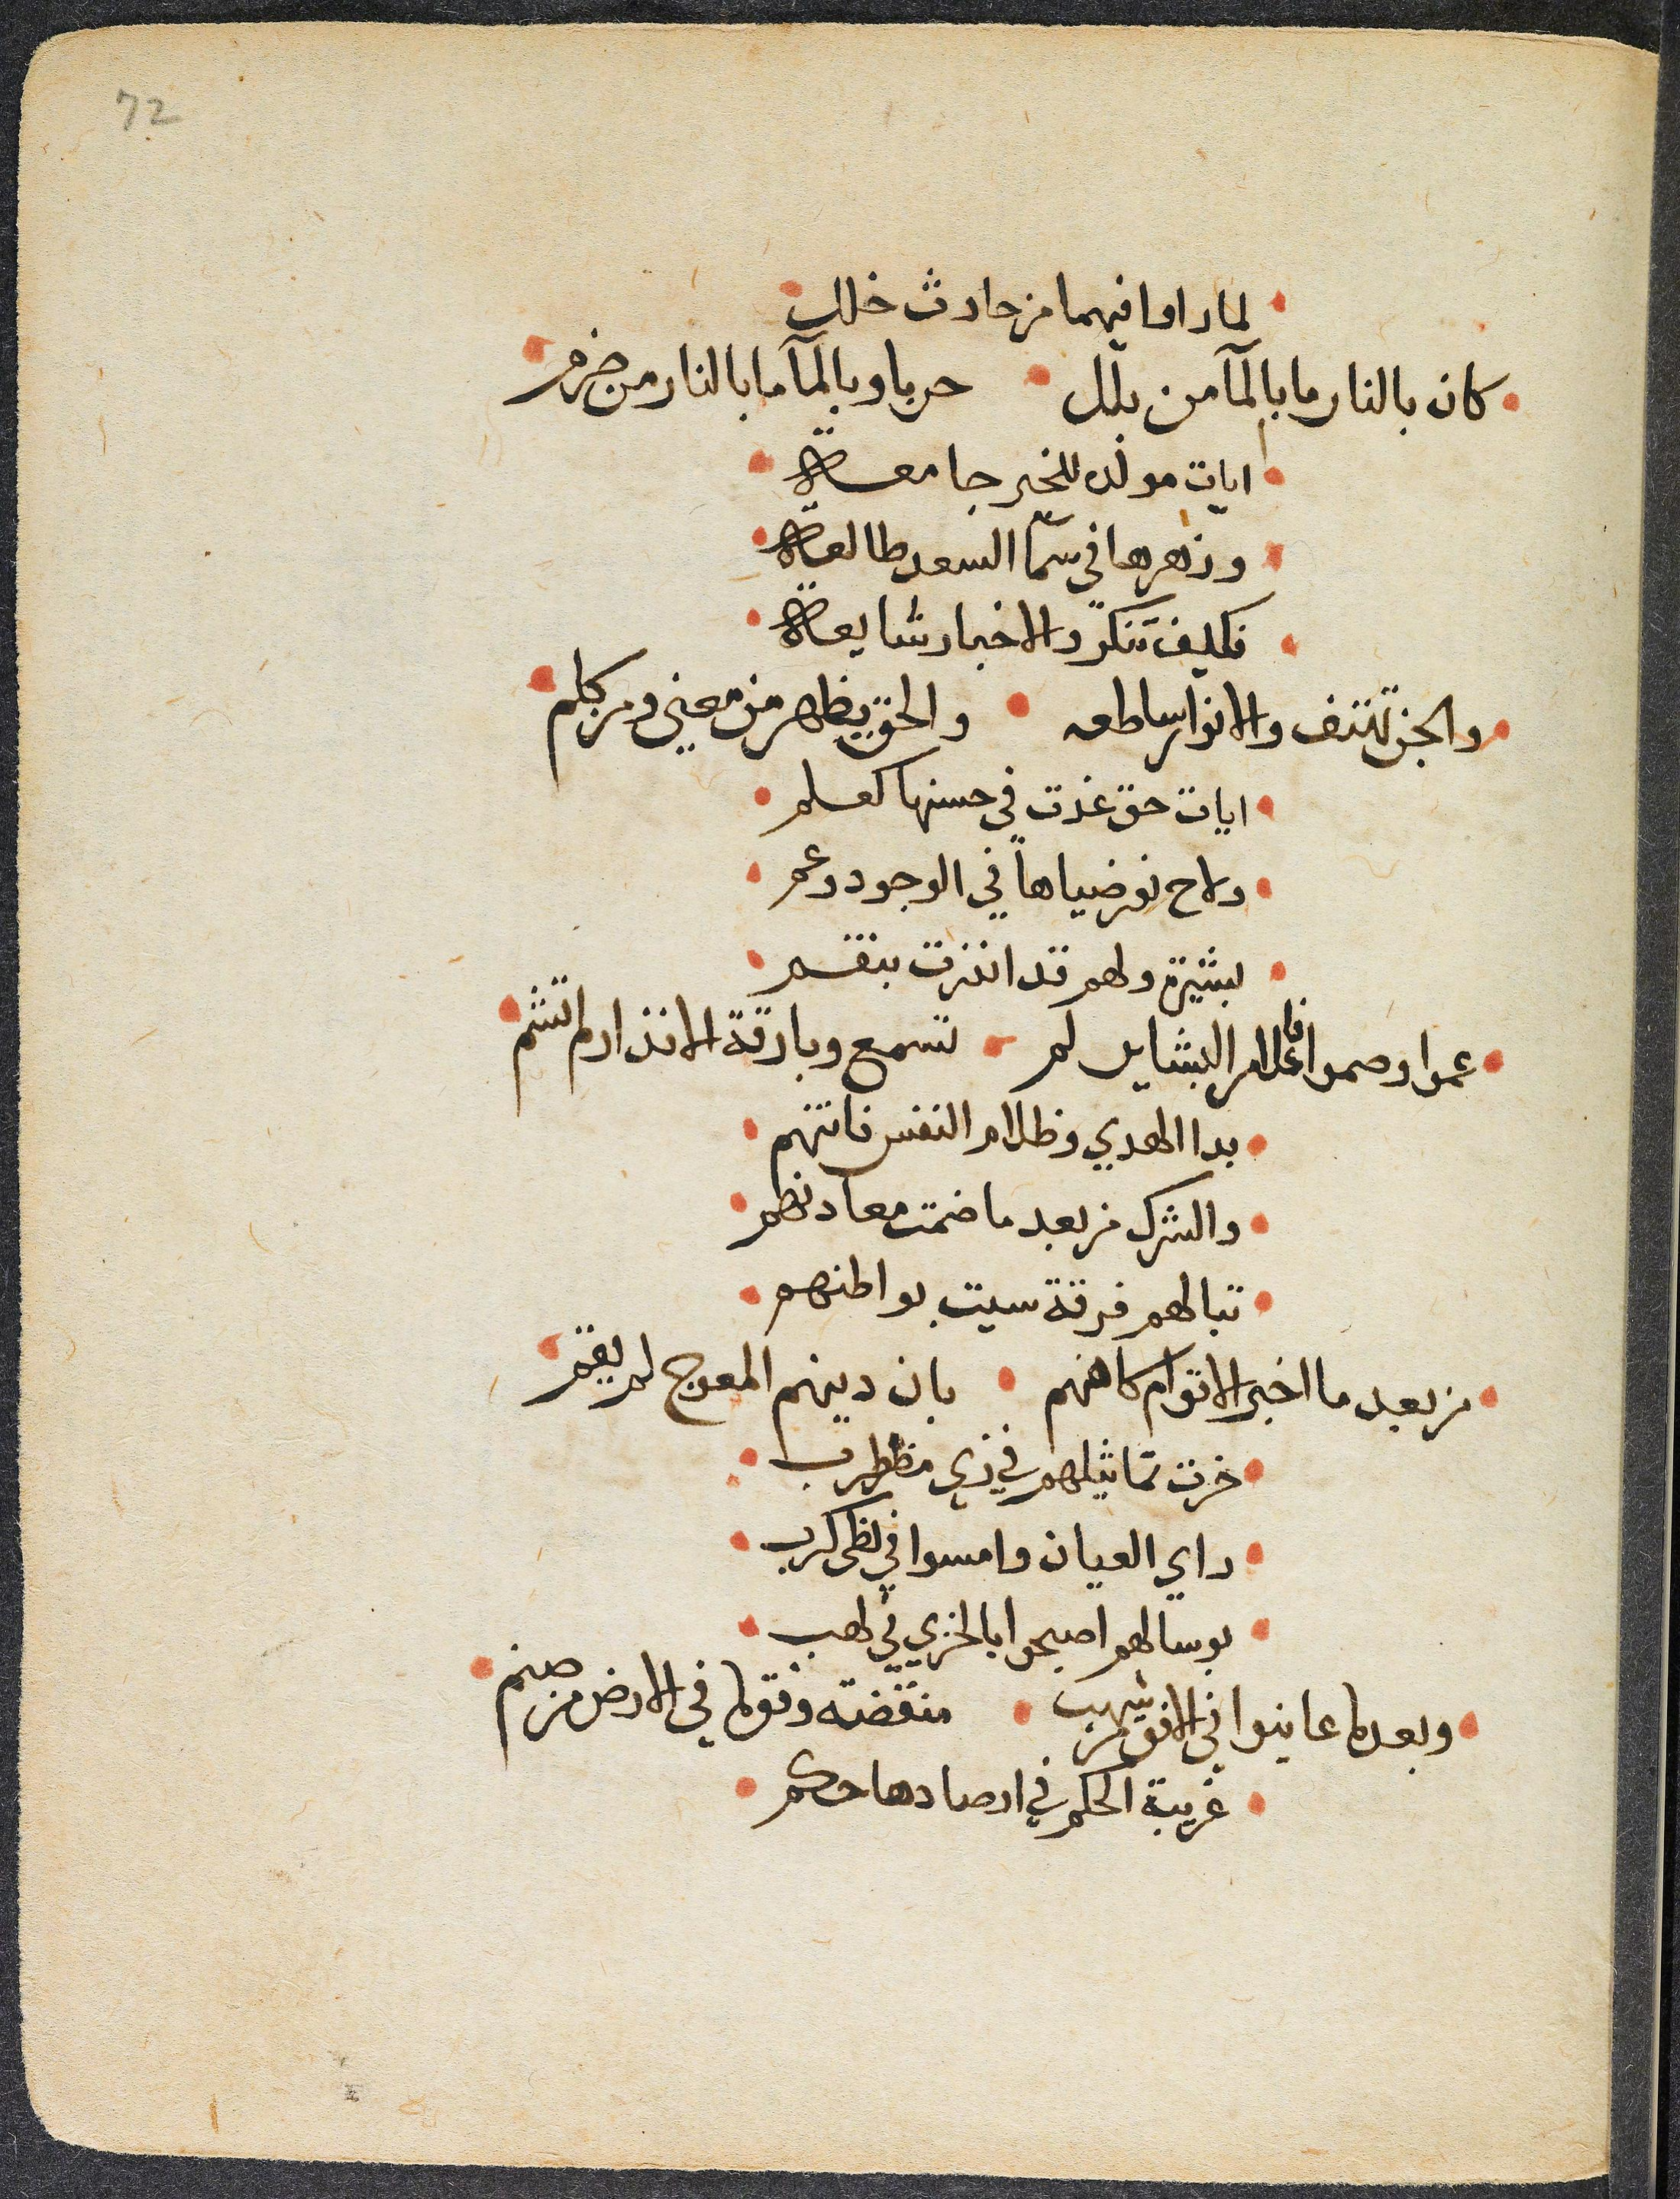 72
لما راوا فيهما من حادث خلل
كان بالنار ما بالمآ من بلل حربا وبالمآ ما بالنار من ضرم
ايات مولده للخير جامعة
وزهرها في سمآ السعد طالعة
فكيف تنكر والاخبار شايعة
والجن تهتف والانوار ساطعه والحق يظهر من معني ومن كلم
ايات حق غدت في حسنها كعلم
ولاح نور ضياها في الوجود وعم
بشيرة ولهم قد انذرت بنقم
عموا وصموا فاعلام البشاير لم تسمع وبارقة الانذار لم تشم
بدا الهدي وظلام النفس فاتنهم
والشرك من بعد ما ضمت معادنهم
تبا لهم فرقة سيت بواطنهم
من بعد ما اخبر الاقوام كاهنهم بان دينهم المعوج لم يقم
خرت تماثيلهم في زي مظطرب
راي العيان وامسوا في لظي كرب
بوسا لهم اصبحوا بالخزي في لهب
وبعد ما عاينوا في الافق من شهب منقضة وفق ما في الارض من صنم
غريبة الحكم في ارصادها حكم